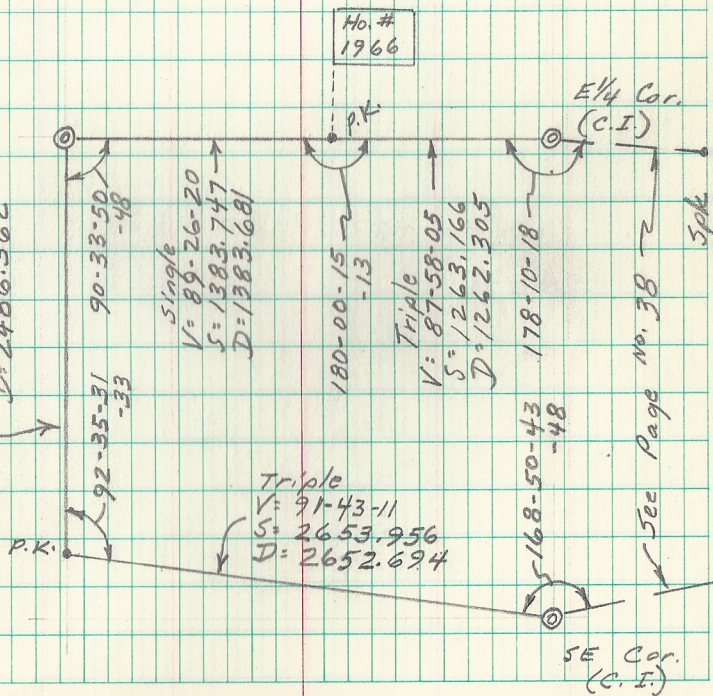 Ho. #
1966
P.K.
E 1/4 Cor.
(C.I.)
Spk
90-33-50
-48
Single
V= 89-26-20
S= 1383.747
D= 1383.681
180-00-15
-13
Triple
V= 87-58-05
S= 1263.166
D= 1262.305
178-10-18
See Page No. 38
92-35-31
-33
168-50-43
-48
Triple
V= 91-43-11
S= 2653.956
D= 2652.694
P.K.
SE Cor.
(C.I.)